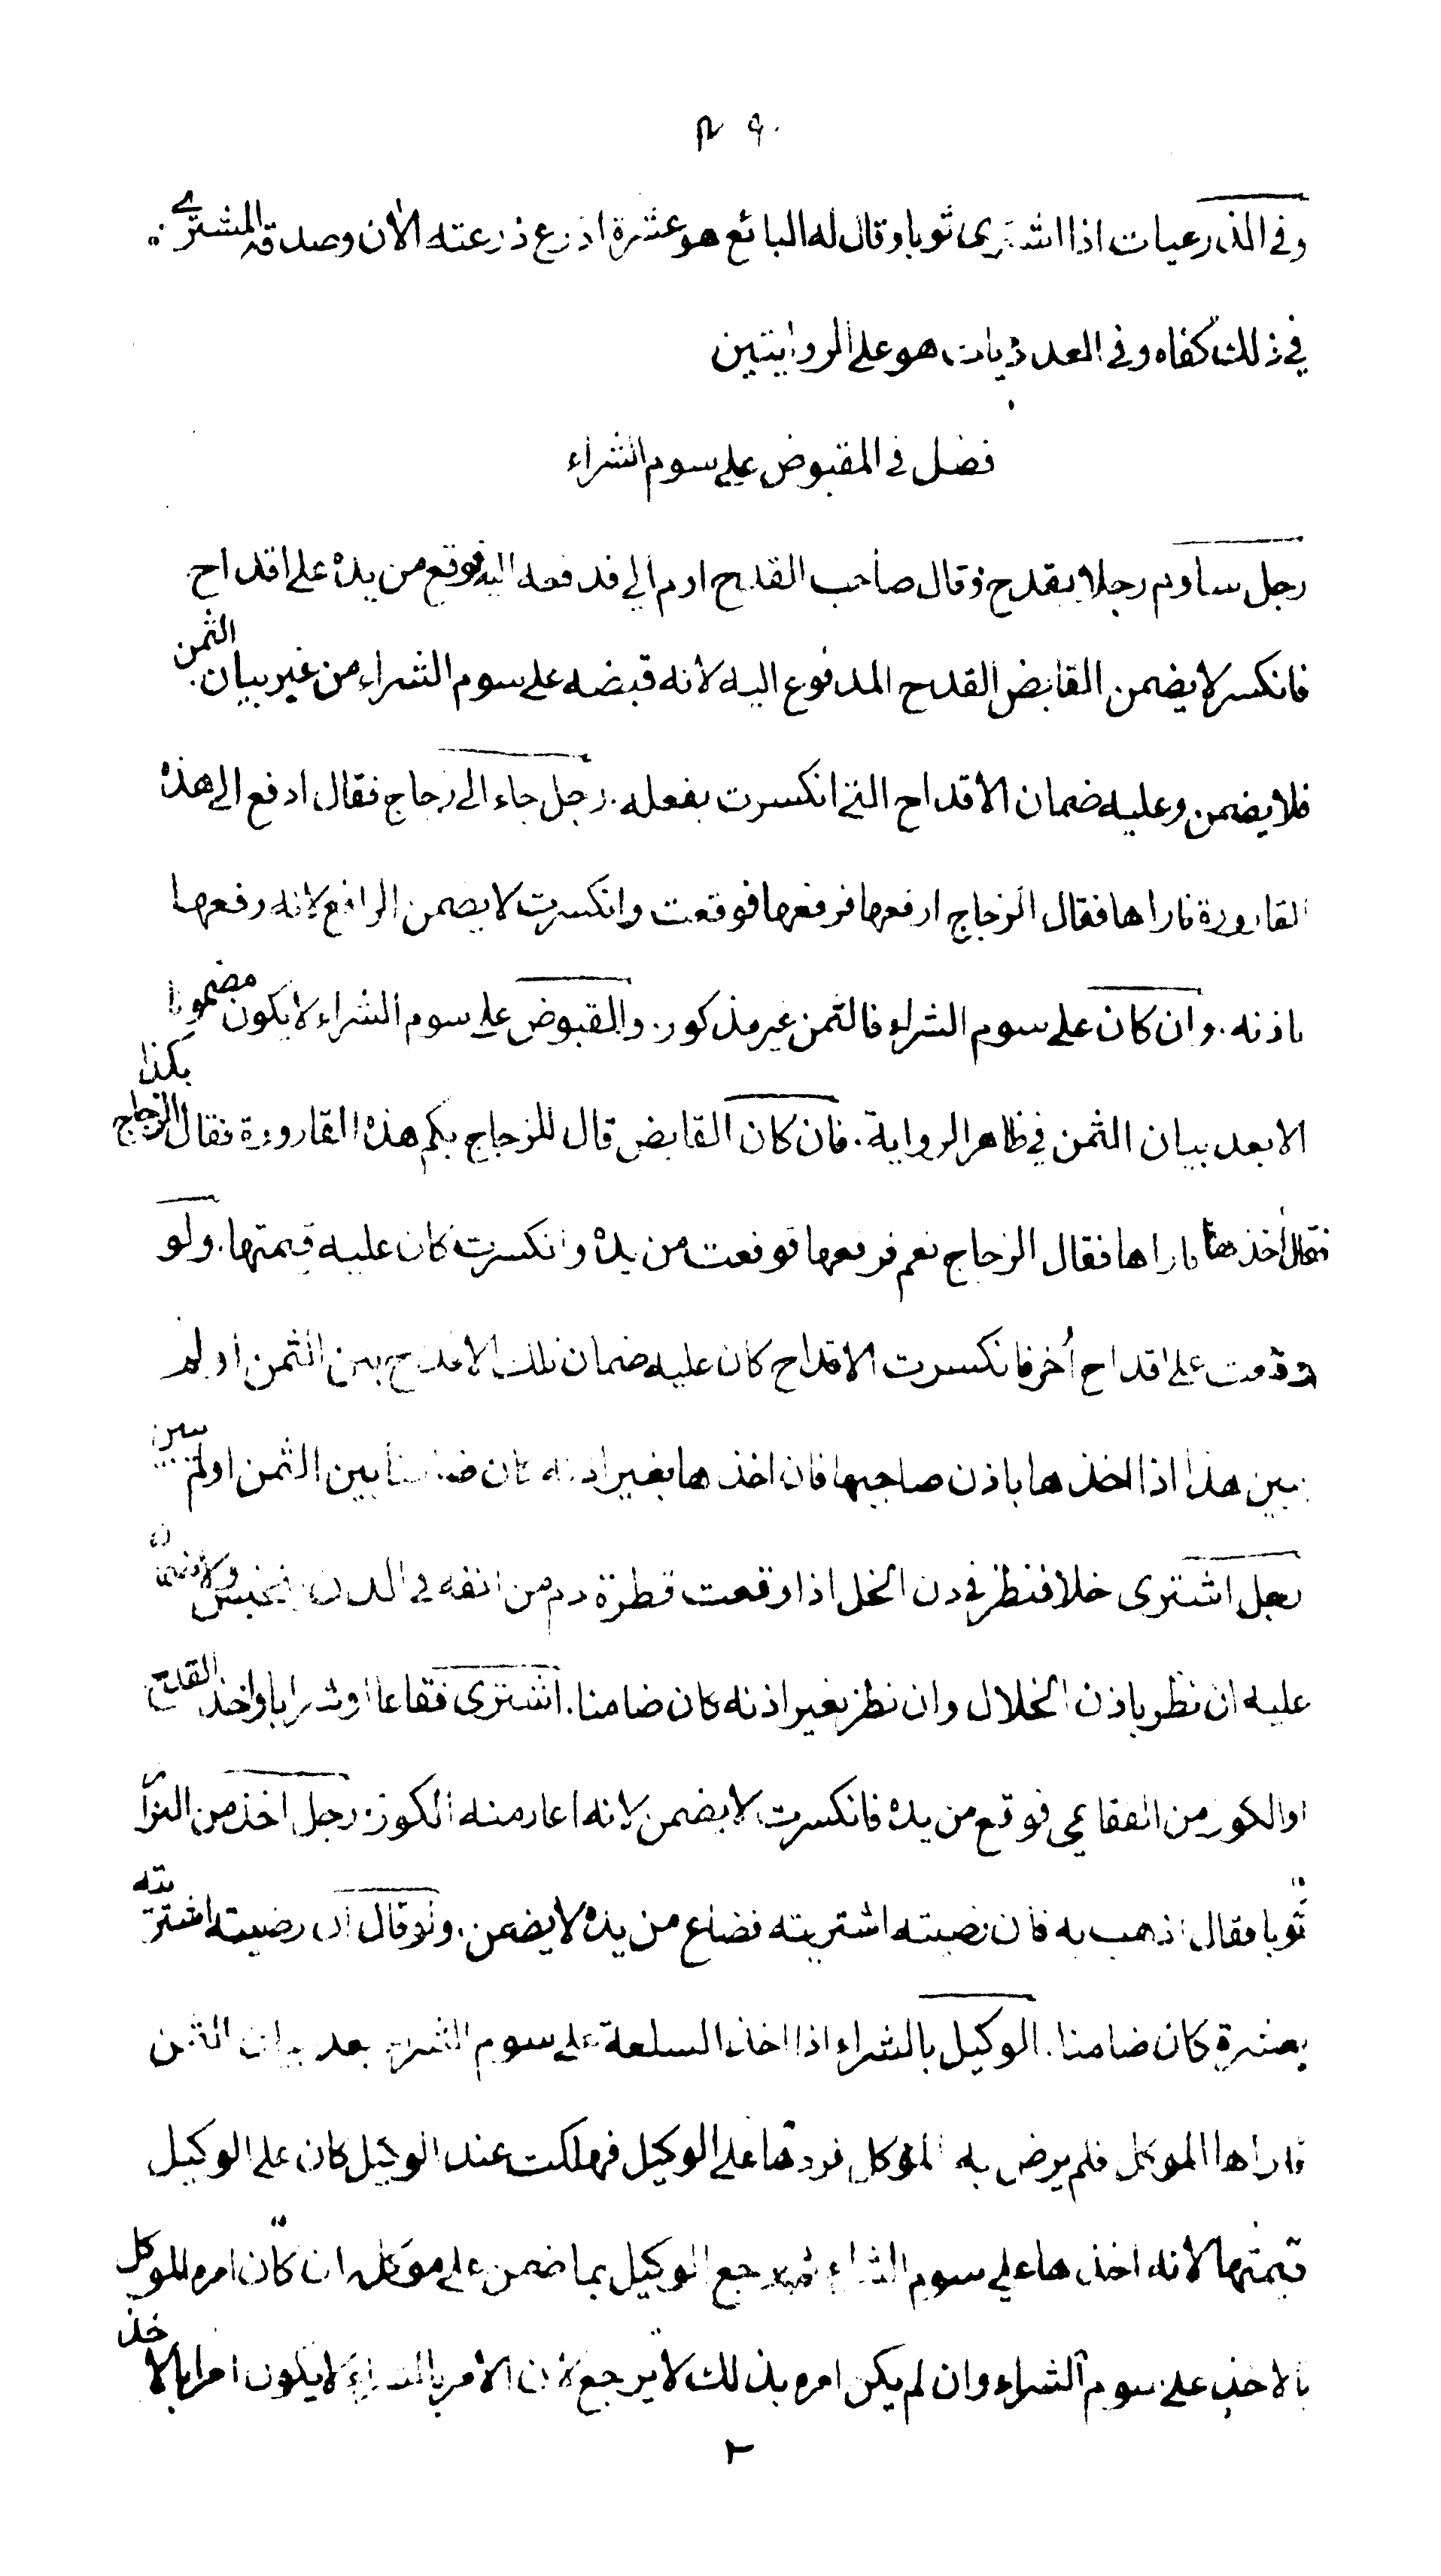 ٢٩٠
وفى الذرعيات اذا اشترى ثوبا وقال له البائع هو عشرة اذرع ذرعته الأن وصدقه المشترے
فى ذلك كفاه وفى العدديات هو على الروايتين
فصل فى المقبوض على سوم الشراء
رجل ساوم رجلا بقدح وقال صاحب القدح ارم الي فدفعه اليه فوقع من يده على اقداح
فانكسر لا يضمن القابض القدح المدفوع اليه لأنه قبضه على سوم الشراء من غير بيان الثمن
فلا يضمن وعليه ضمان الأقداح التي انكسرت بفعله. رجل جاء الى زجاج فقال ادفع الى هذه
القارورة فاراها فقال الزجاج ارفعها فرفعها فوقعت وانكسرت لا يضمن الرافع لانه رفعها
باذنه. وان كان على سوم الشراء فالثمن غير مذكور. والمقبوض على سوم الشراء لا يكون مضمونا
الا بعد بيان الثمن في ظاهر الرواية. فان كان القابض قال للزجاج بكم هذه القارورة فقال الزجاج بكذا
فقال أخذها فاراها فقال الزجاج نعم فرفعها فوقعت من يده وانكسرت كان عليه قيمتها. ولو
وقعت على اقداح أخر فانكسرت الاقداح كان عليه ضمان تلك الاقداح بين الثمن او لم
يبين هذا اذا اخذها باذن صاحبها فان اخذها بغير اذنه كان ضامنا بين الثمن او لم يبين
رجل اشترى خلا فنظر في دن الخل اذا وقعت قطرة دم من انفه في الدن يتنجس ولا ضمان
عليه ان نظر باذن الخلال وان نظر بغير اذنه كان ضامنا. اشترى فقاعا او شرابا واخذ القدح
او الكوز من الفقاعي فوقع من يده فانكسرت لا يضمن لانه اعار منه الكوز. رجل اخذ من البزاز
ثوبا فقال اذهب به فان رضيته اشتريته فضاع من يده لا يضمن. ولو قال ان رضيته اشتريته
بعشرة كان ضامنا. الوكيل بالشراء اذا اخذ السلعة على سوم الشراء بعد بيان الثمن
فاراها الموكل فلم يرض به الموكل فردها على الوكيل فهلكت عند الوكيل كان على الوكيل
قيمتها لانه اخذها على سوم الشراء ثم يرجع الوكيل بما ضمن على موكله ان كان امره الموكل
بالاخذ على سوم الشراء وان لم يكن امره بذلك لا يرجع لان الأمر بالشراء لا يكون امرا بالاخذ